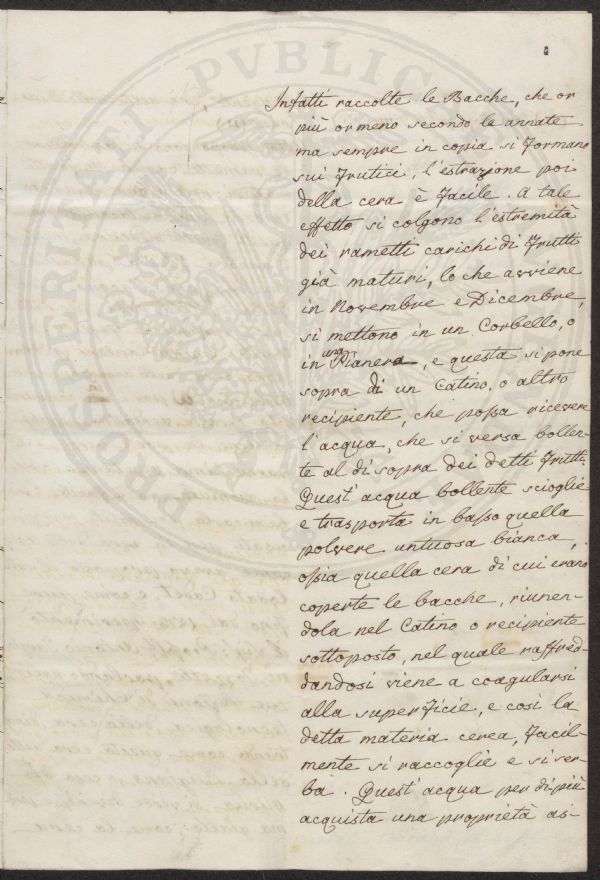 Infatti raccolte le Bacche, che or
più or meno secondo le annate
ma sempre in copia si formano
sui frutici, l'estrazione poi
della cera è facile. A tale
effetto si colgono l'estremità
dei rametti carichi di frutti
già maturi, lo che avviene
in Novembre e Dicembre,
si mettono in un Corbello, o
in una Pianera, e questa si pone
sopra di un Catino, o altro
recipiente, che possa ricevere
l'acqua, che si versa bollen-
te al di sopra dei detti frutti.
Quest'acqua bollente scioglie
e trasporta in basso quella
polvere untuosa bianca,
ossia quella cera di cui erano
coperte le bacche, riunen-
dola nel Catino o recipiente
sottoposto, nel quale raffred-
dandosi viene a coagularsi
alla superficie, e così la
detta materia cerea, facil-
mente si raccoglie e si ser-
ba. Quest'acqua per di più
acquista una proprietà as-
PROSPERITATI PVBLIC